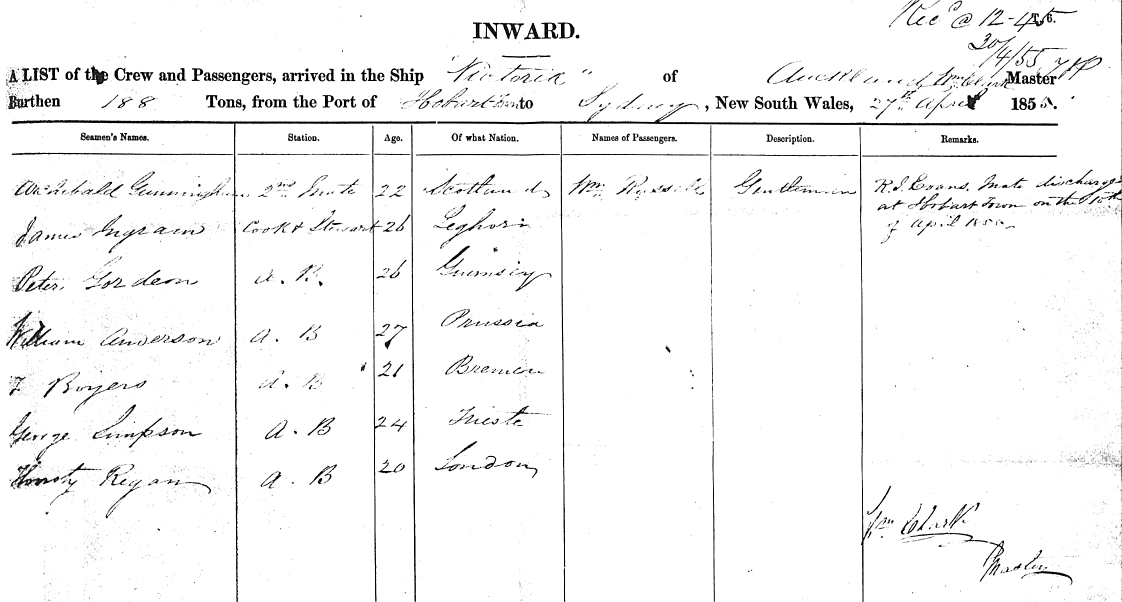 Rec'd @ 12-45
T. 6.
INWARD.
30/4/55
A LIST of the Crew and Passengers, arrived in the Ship "Victoria" of Auckland Wm Clark Master
Burthen 188 Tons, from the Port of Hobart Town to Sydney, New South Wales, 27th April 1855.
Seamen's Names. Station. Age. Of what Nation. Names of Passengers. Description. Remarks.
Archibald Cunningham 2nd Mate 22 Scotland Wm Russell Gentleman R.J. Evans, Mate discharged
at Hobart Town on the 10th
of April 1855
James Ingram Cook & Steward 26 Leghorn
Peter Gordeon A. B. 26 Guernsey
William Anderson A. B 27 Prussia
F Boyers A. B 21 Bremen
George Simpson A. B 24 Trieste
Timothy Regan A. B 20 London
Wm Clark
Master